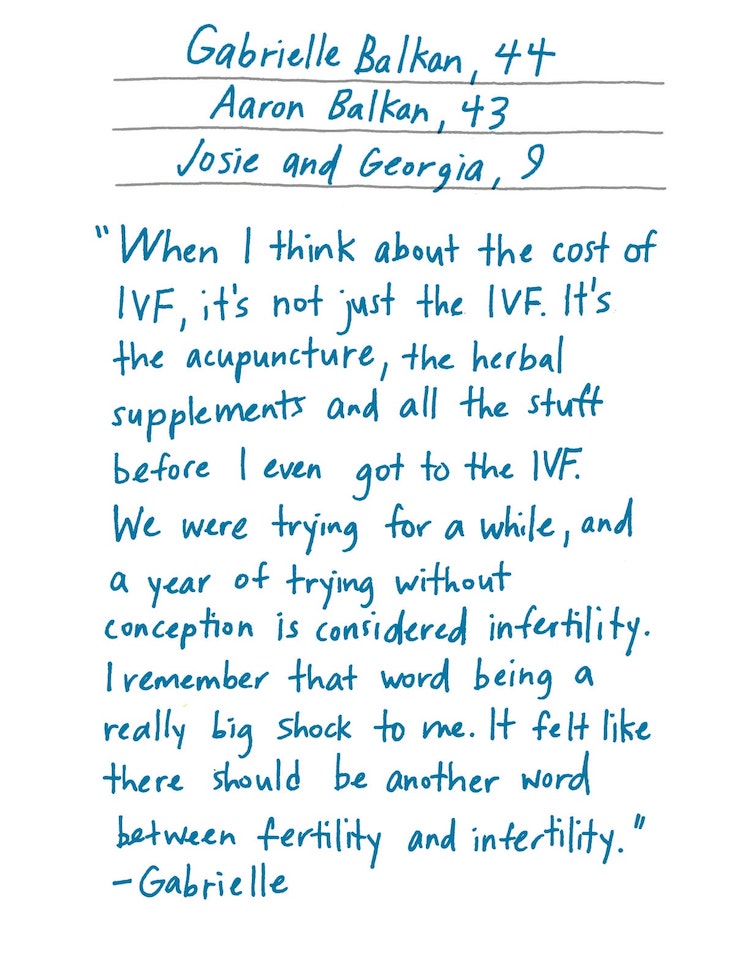 Gabrielle Balkan, 44
Aaron Balkan, 43
Josie and Georgia, 9
"When I think about the cost of
IVF, it's not just the IVF. It's
the acupuncture, the herbal
supplements and all the stuff
before I even got to the IVF.
We were trying for a while, and
a year of trying without
conception is considered infertility.
I remember that word being a
really big shock to me. It felt like
there should be another word
between fertility and infertility."
– Gabrielle